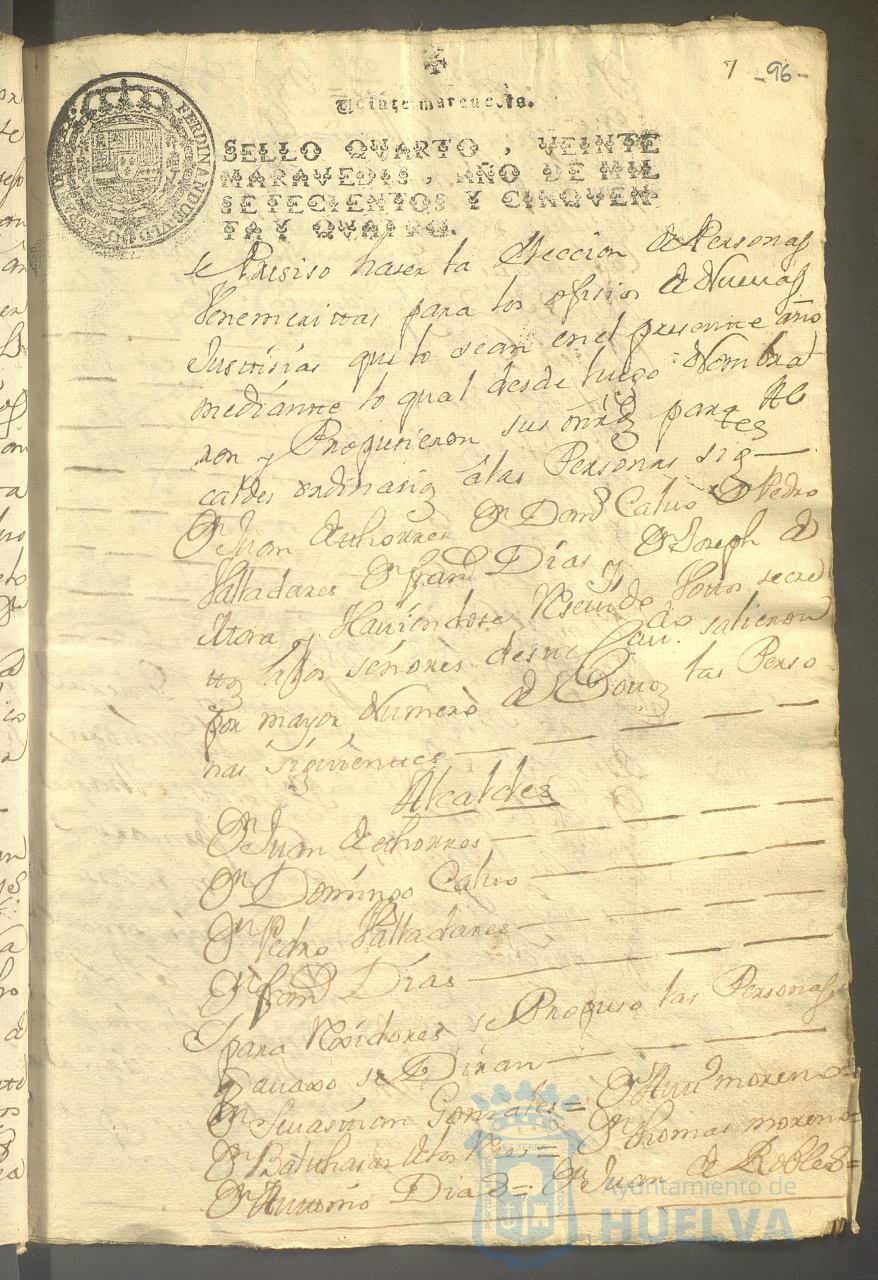 7 -96-
Veinte maravedis.
SELLO QVARTO, VEINTE
MARAVEDIS, AÑO DE MIL
SETECIENTOS Y CINQVEN-
TAY QVATRO.
FERDINANDUS VI D G
se Presiso haser la Eleccion de Personas
Venemerittas para los ofisios de Nuevas
Justtisias que lo sean en el presentte año
mediantte lo qual desde luego Nombra
ron y Propusieron sus mrds para Al
caldes ordinarios a las Personas sigtes
Dn Juan dethorres Dn Domo Calvo Dn Pedro
Valladares Dn Franco Dias y Dn Joseph de
Mora y Haviendose Resevido Vottos secre
ttos a los señores deste Cavdo salieron
por mayor Numero de Vottos las Perso
nas siguienttes
Alcaldes
Dn Juan dethorres
Dn Domingo Calvo
Dn Pedro Valladares
Dn Franco Dias
Y para Rexidores se Propuso las Personas
que avaxo se Diran
Dn Gonzales = Dn moreno =
Dn Balthasar delos Rios = Dn thomas moreno =
Dn Anttonio Dias = Dn Juan de Robles =
Ayuntamiento de
HUELVA